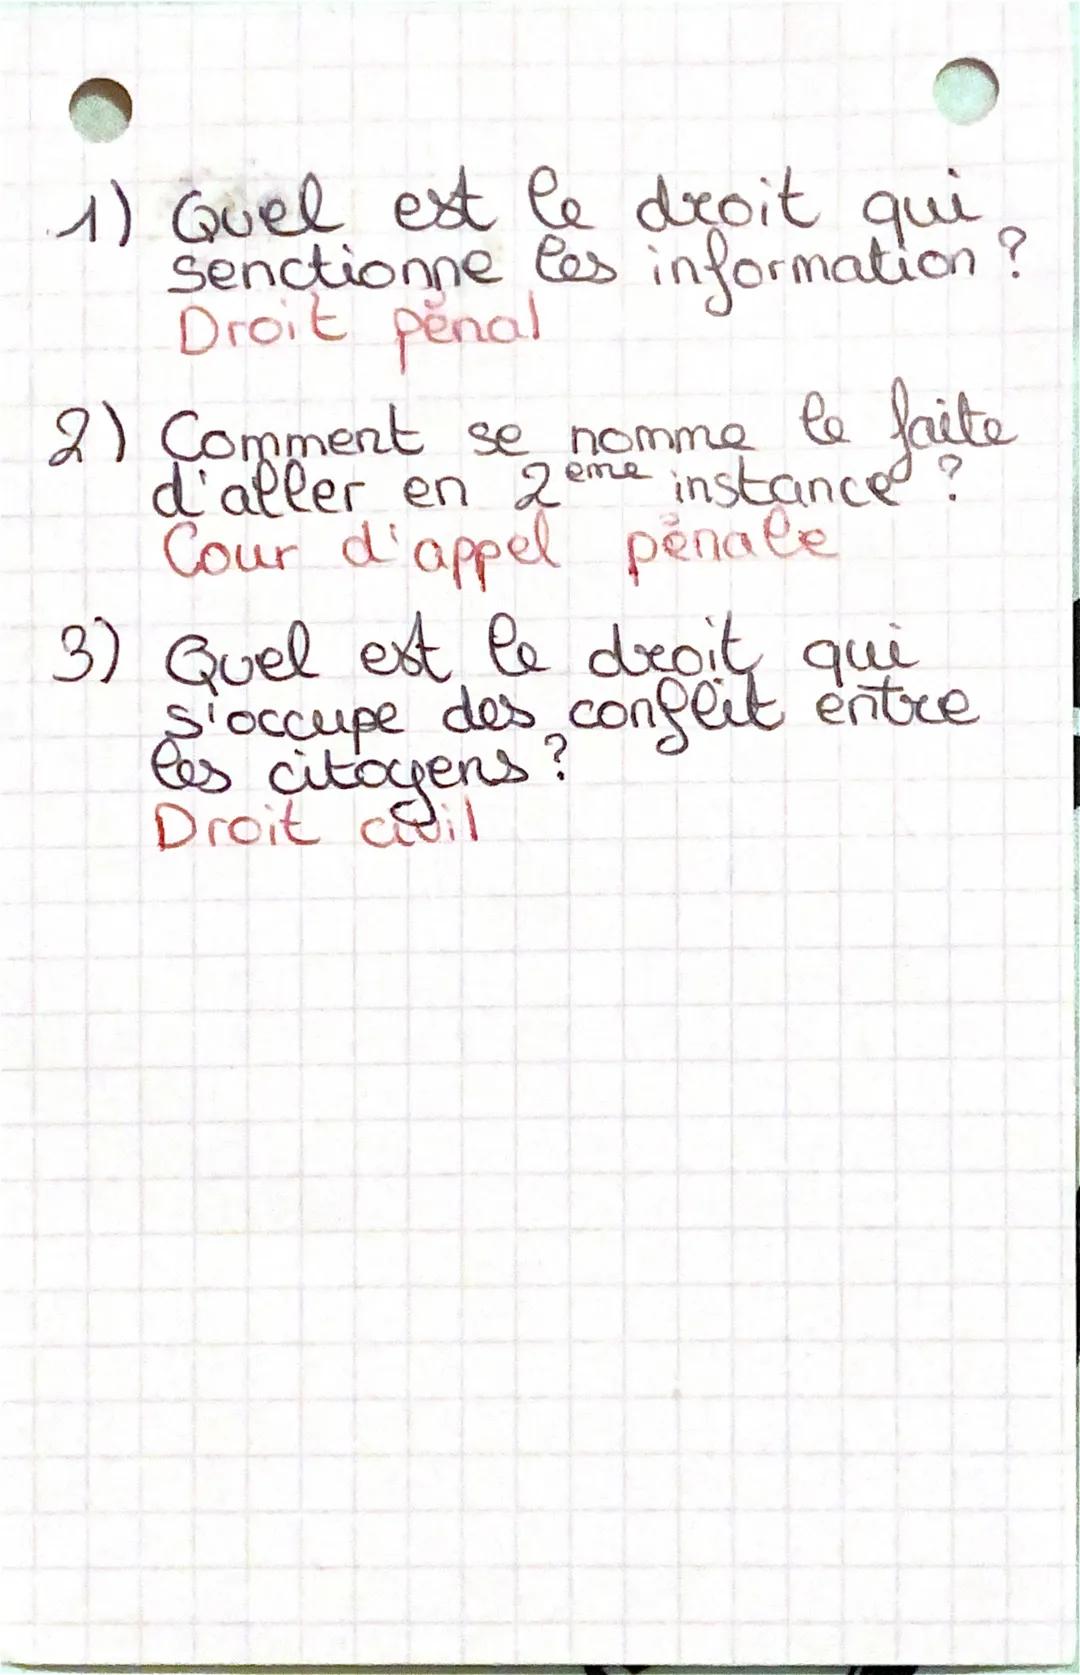 1) Quel est le droit qui
senctionne les information ?
Droit pénal
2) Comment se nomme le faite
d'aller en 2ème instance ?
Cour d'appel pénale
3) Quel est le droit qui
s'occupe des conflit entre
les citoyens ?
Droit civil